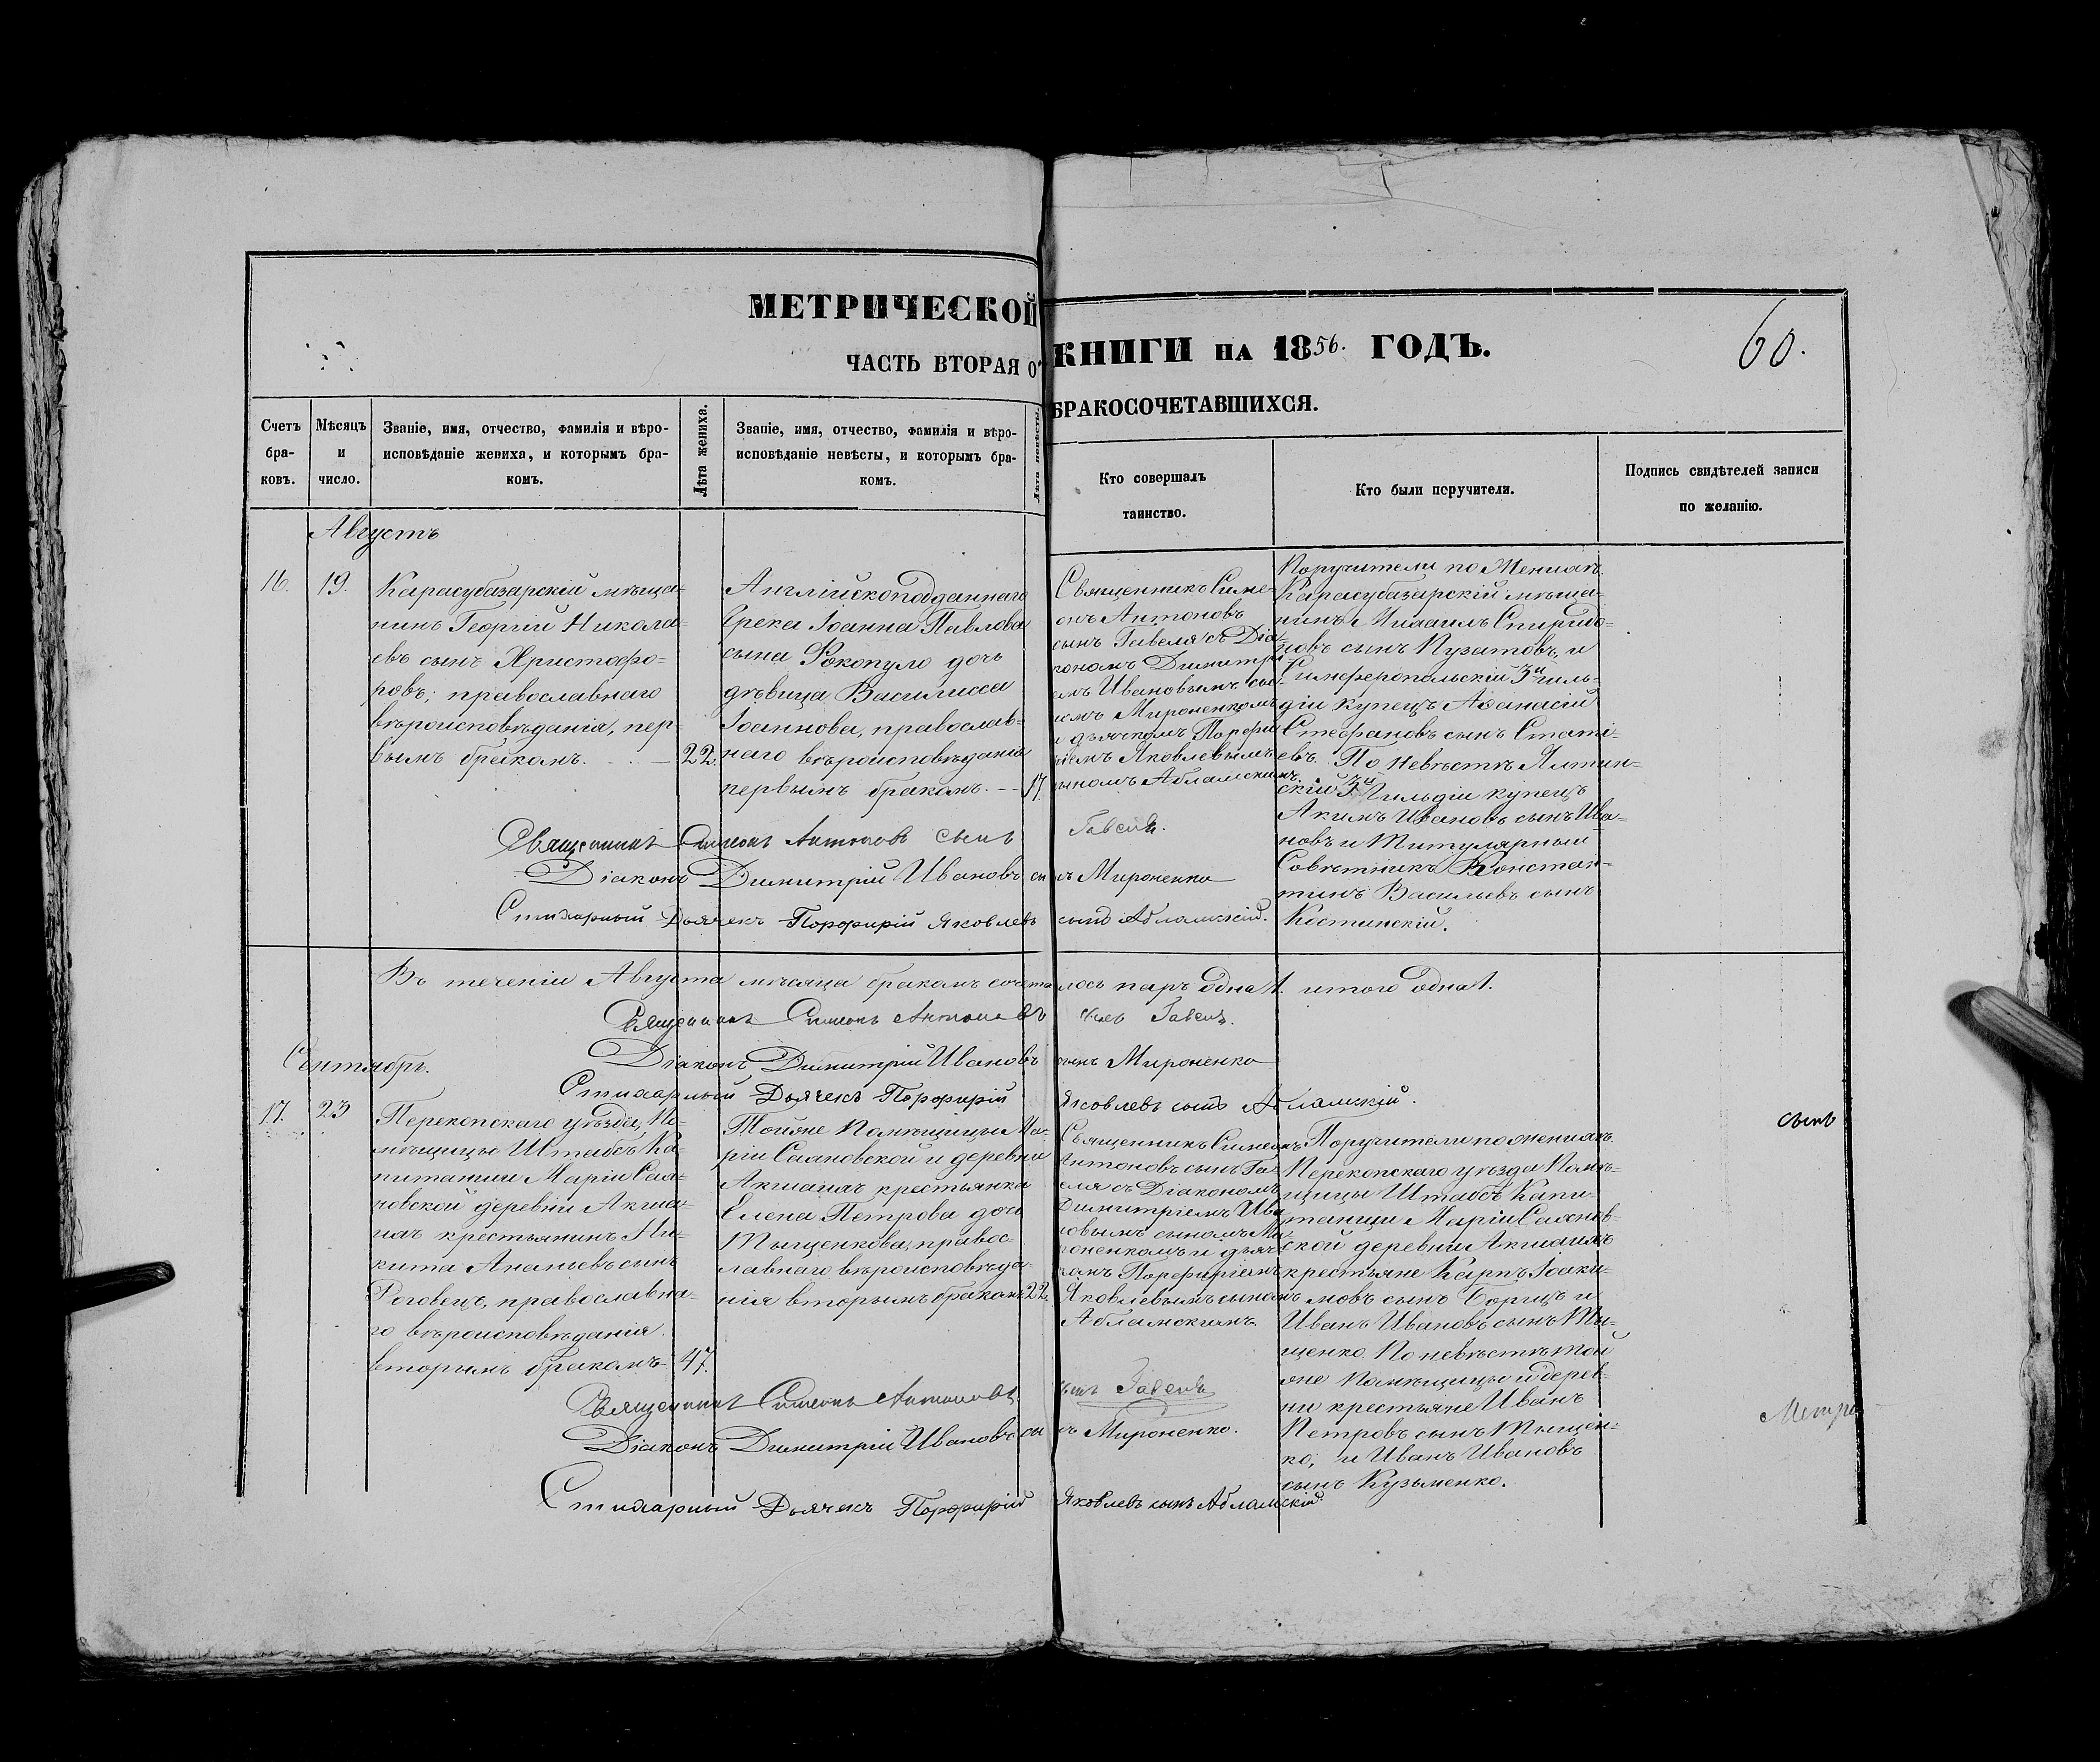 МЕТРИЧЕСКОЙ КНИГИ НА 1856. ГОДЪ.
60.
ЧАСТЬ ВТОРАЯ О БРАКОСОЧЕТАВШИХСЯ.
Счетъ бра-ковъ.
Мѣсяцъ и число.
Званіе, имя, отчество, фамилія и вѣро-
исповѣданіе жениха, и которымъ бра-
комъ.
Лѣта жениха.
Званіе, имя, отчество, фамилія и вѣро-
исповѣданіе невѣсты, и которымъ бра-
комъ.
Лѣта невѣсты.
Кто совершалъ
таинство.
Кто были поручители.
Подпись свидѣтелей записи
по желанію.
Августъ
16. 19.
Карасубазарскій мѣща-
нинъ Георгій Никола-
евъ сынъ Христофо-
ровъ; православнаго
вѣроисповѣданія, пер-
вымъ бракомъ. 22.
Англійскоподданнаго
Грека Іоанна Павлова
сына Рокопуло дочь
дѣвица Василисса
Іоаннова, православ-
наго вѣроисповѣданія
первымъ бракомъ. 17.
Священникъ Симе-
онъ Антоновъ
сынъ Гавеля съ Діа-
кономъ Димитрі-
емъ Ивановымъ сы-
номъ Мироненкомъ
и дьячкомъ Порфи-
ріемъ Яковлевымъ
сыномъ Абламскимъ.
Поручители по Женихѣ.
Карасубазарскій мѣща-
нинъ Михаилъ Спиридо-
новъ сынъ Пузатовъ, и
Симферопольскій 3й гиль-
діи купецъ Аѳанасій
Стефановъ сынъ Статі-
евъ. По Невѣстѣ Ялтин-
скій 3й Гильдіи купецъ
Акимъ Ивановъ сынъ Ива-
новъ и Титулярный
Совѣтникъ Констан-
тинъ Васильевъ сынъ
Костинскій.
Священникъ Симеонъ Антоновъ сынъ Гавеля.
Діаконъ Димитрій Ивановъ сынъ Мироненко
Стихарный Дьячекъ Порфирій Яковлевъ сынъ Абламскій.
Въ теченіи Августа мѣсяца бракомъ сочеталось паръ одна 1. итого одна 1.
Священникъ Симеонъ Антоновъ сынъ Гавеля.
Діаконъ Димитрій Ивановъ сынъ Мироненко
Стихарный Дьячекъ Порфирій Яковлевъ сынъ Абламскій.
Сентябрь.
17. 23
Перекопскаго уѣзда, По-
мѣщицы Штабсъ Ка-
питанши Маріи Саян-
новской деревни Акша-
нач крестьянинъ Ни-
кита Ананьевъ сынъ
Роговецъ, православна-
го вѣроисповѣданія
вторымъ бракомъ 47.
Тойже Помѣщицы Ма-
ріи Саановской и деревни
крестьянка
Елена Петрова дочь
Тыщенкова, правос-
лавнаго вѣроисповѣда-
нія вторымъ бракомъ 22.
Священникъ Симеонъ
Антоновъ сынъ Га-
веля съ Діакономъ
Димитріемъ Ива-
новымъ сыномъ Ми-
роненкомъ и дьяч-
комъ Порфиріемъ
Яковлевымъ сыномъ
Абламскимъ.
Поручители по женихѣ.
Перекопскаго уѣзда Помѣ-
щицы Штабсъ Капи-
танши Маріи Саянов-
ской деревни
крестьяне Карпъ Іоаки-
мовъ сынъ Борщъ и
Иванъ Ивановъ сынъ Ти-
щенко. По невѣстѣ той
же Помѣщицы и дерев-
ни крестьяне Иванъ
Петровъ сынъ Тыщен-
ко, и Иванъ Ивановъ
сынъ Кузьменко.
сынъ
Священникъ Симеонъ Антоновъ сынъ Гавеля
Діаконъ Димитрій Ивановъ сынъ Мироненко.
Стихарный Дьячекъ Порфирій Яковлевъ сынъ Абламскій.